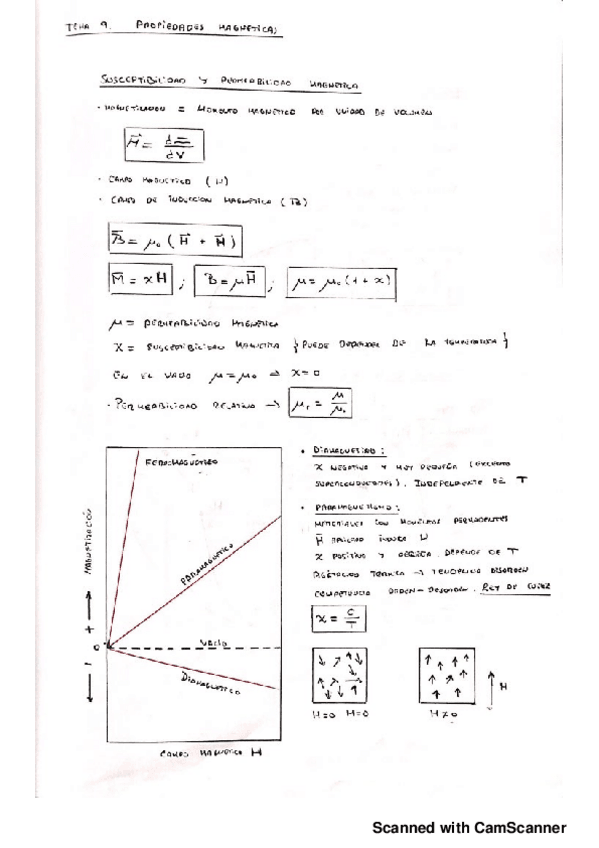 TEMA 9. PROPIEDADES MAGNETICAS
SUSCEPTIBILIDAD Y PERMEABILIDAD MAGNETICA
· MAGNETIZACION = MOMENTO MAGNETICO POR UNIDAD DE VOLUMEN
M = dm/dV
· CAMPO MAGNETICO (H)
· CAMPO DE INDUCCION MAGNETICA (B)
B = μ₀ (H + M)
M = xH ; B = μH ; μ = μ₀ (1 + x)
μ = PERMEABILIDAD MAGNETICA
X = SUSCEPTIBILIDAD MAGNETICA { PUEDE DEPENDER DE LA TEMPERATURA }
EN EL VACIO μ = μ₀ ⇒ X = 0
· PERMEABILIDAD RELATIVA → μr = μ/μ₀
MAGNETIZACIÓN
+
0
-
FERROMAGNÉTICO
PARAMAGNÉTICO
VACIO
DIAMAGNETICO
CAMPO MAGNETICO H
• DIAMAGNETISMO :
X NEGATIVA Y MUY PEQUEÑA (EXCEPTO
SUPERCONDUCTORES). INDEPENDIENTE DE T
• PARAMAGNETISMO :
MATERIALES CON MOMENTOS PERMANENTES
H APLICADO INDUCE M
X POSITIVA Y DEPENDE DE T
TERMICA → TENDENCIA DESORDEN
COMPETENCIA ORDEN - DESORDEN. LEY DE CURIE
X = C/T
M=0 H=0
H≠0
H
Scanned with CamScanner